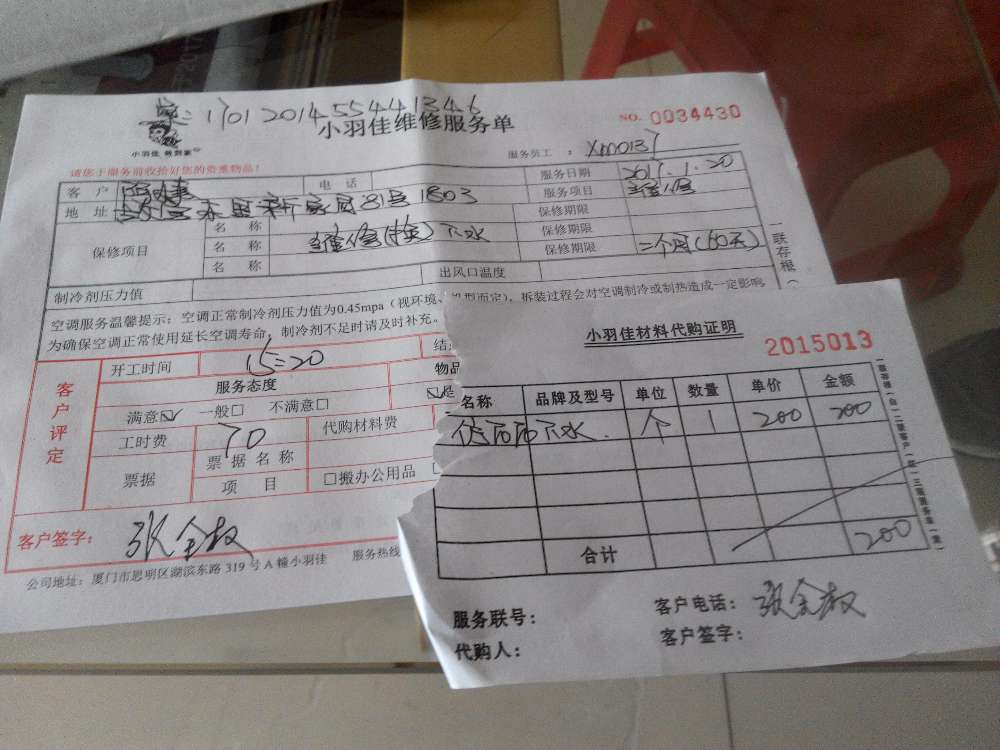 单:1701201455441346
小羽佳维修服务单
NO. 0034430
小羽佳 做到家
服务员工 : XM0137
请您于服务前收拾好您的贵重物品!
客 户 电 话 服务日期 2017.1.20
地 址 1803 服务项目 维修
保修项目 名 称 保修期限
名 称 维修(换)下水 保修期限
名 称 保修期限 二个月(60天)
制冷剂压力值 出风口温度
联存根
空调服务温馨提示:空调正常制冷剂压力值为0.45mpa(视环境、机型而定),拆装过程会对空调制冷或制热造成一定影响
为确保空调正常使用延长空调寿命,制冷剂不足时请及时补充。
客户评定
开工时间 15:20
服务态度 物品
满意☑ 一般□ 不满意□
工时费 70 代购材料费
票据 票据名称
项 目 □搬办公用品
客户签字: 张全权
公司地址:厦门市思明区湖滨东路 319 号 A 幢小羽佳 服务热线
小羽佳材料代购证明
2015013
名称 品牌及型号 单位 数量 单价 金额
下水 个 1 200 200
合计 200
服务联号: 客户电话: 张全权
代购人: 客户签字: